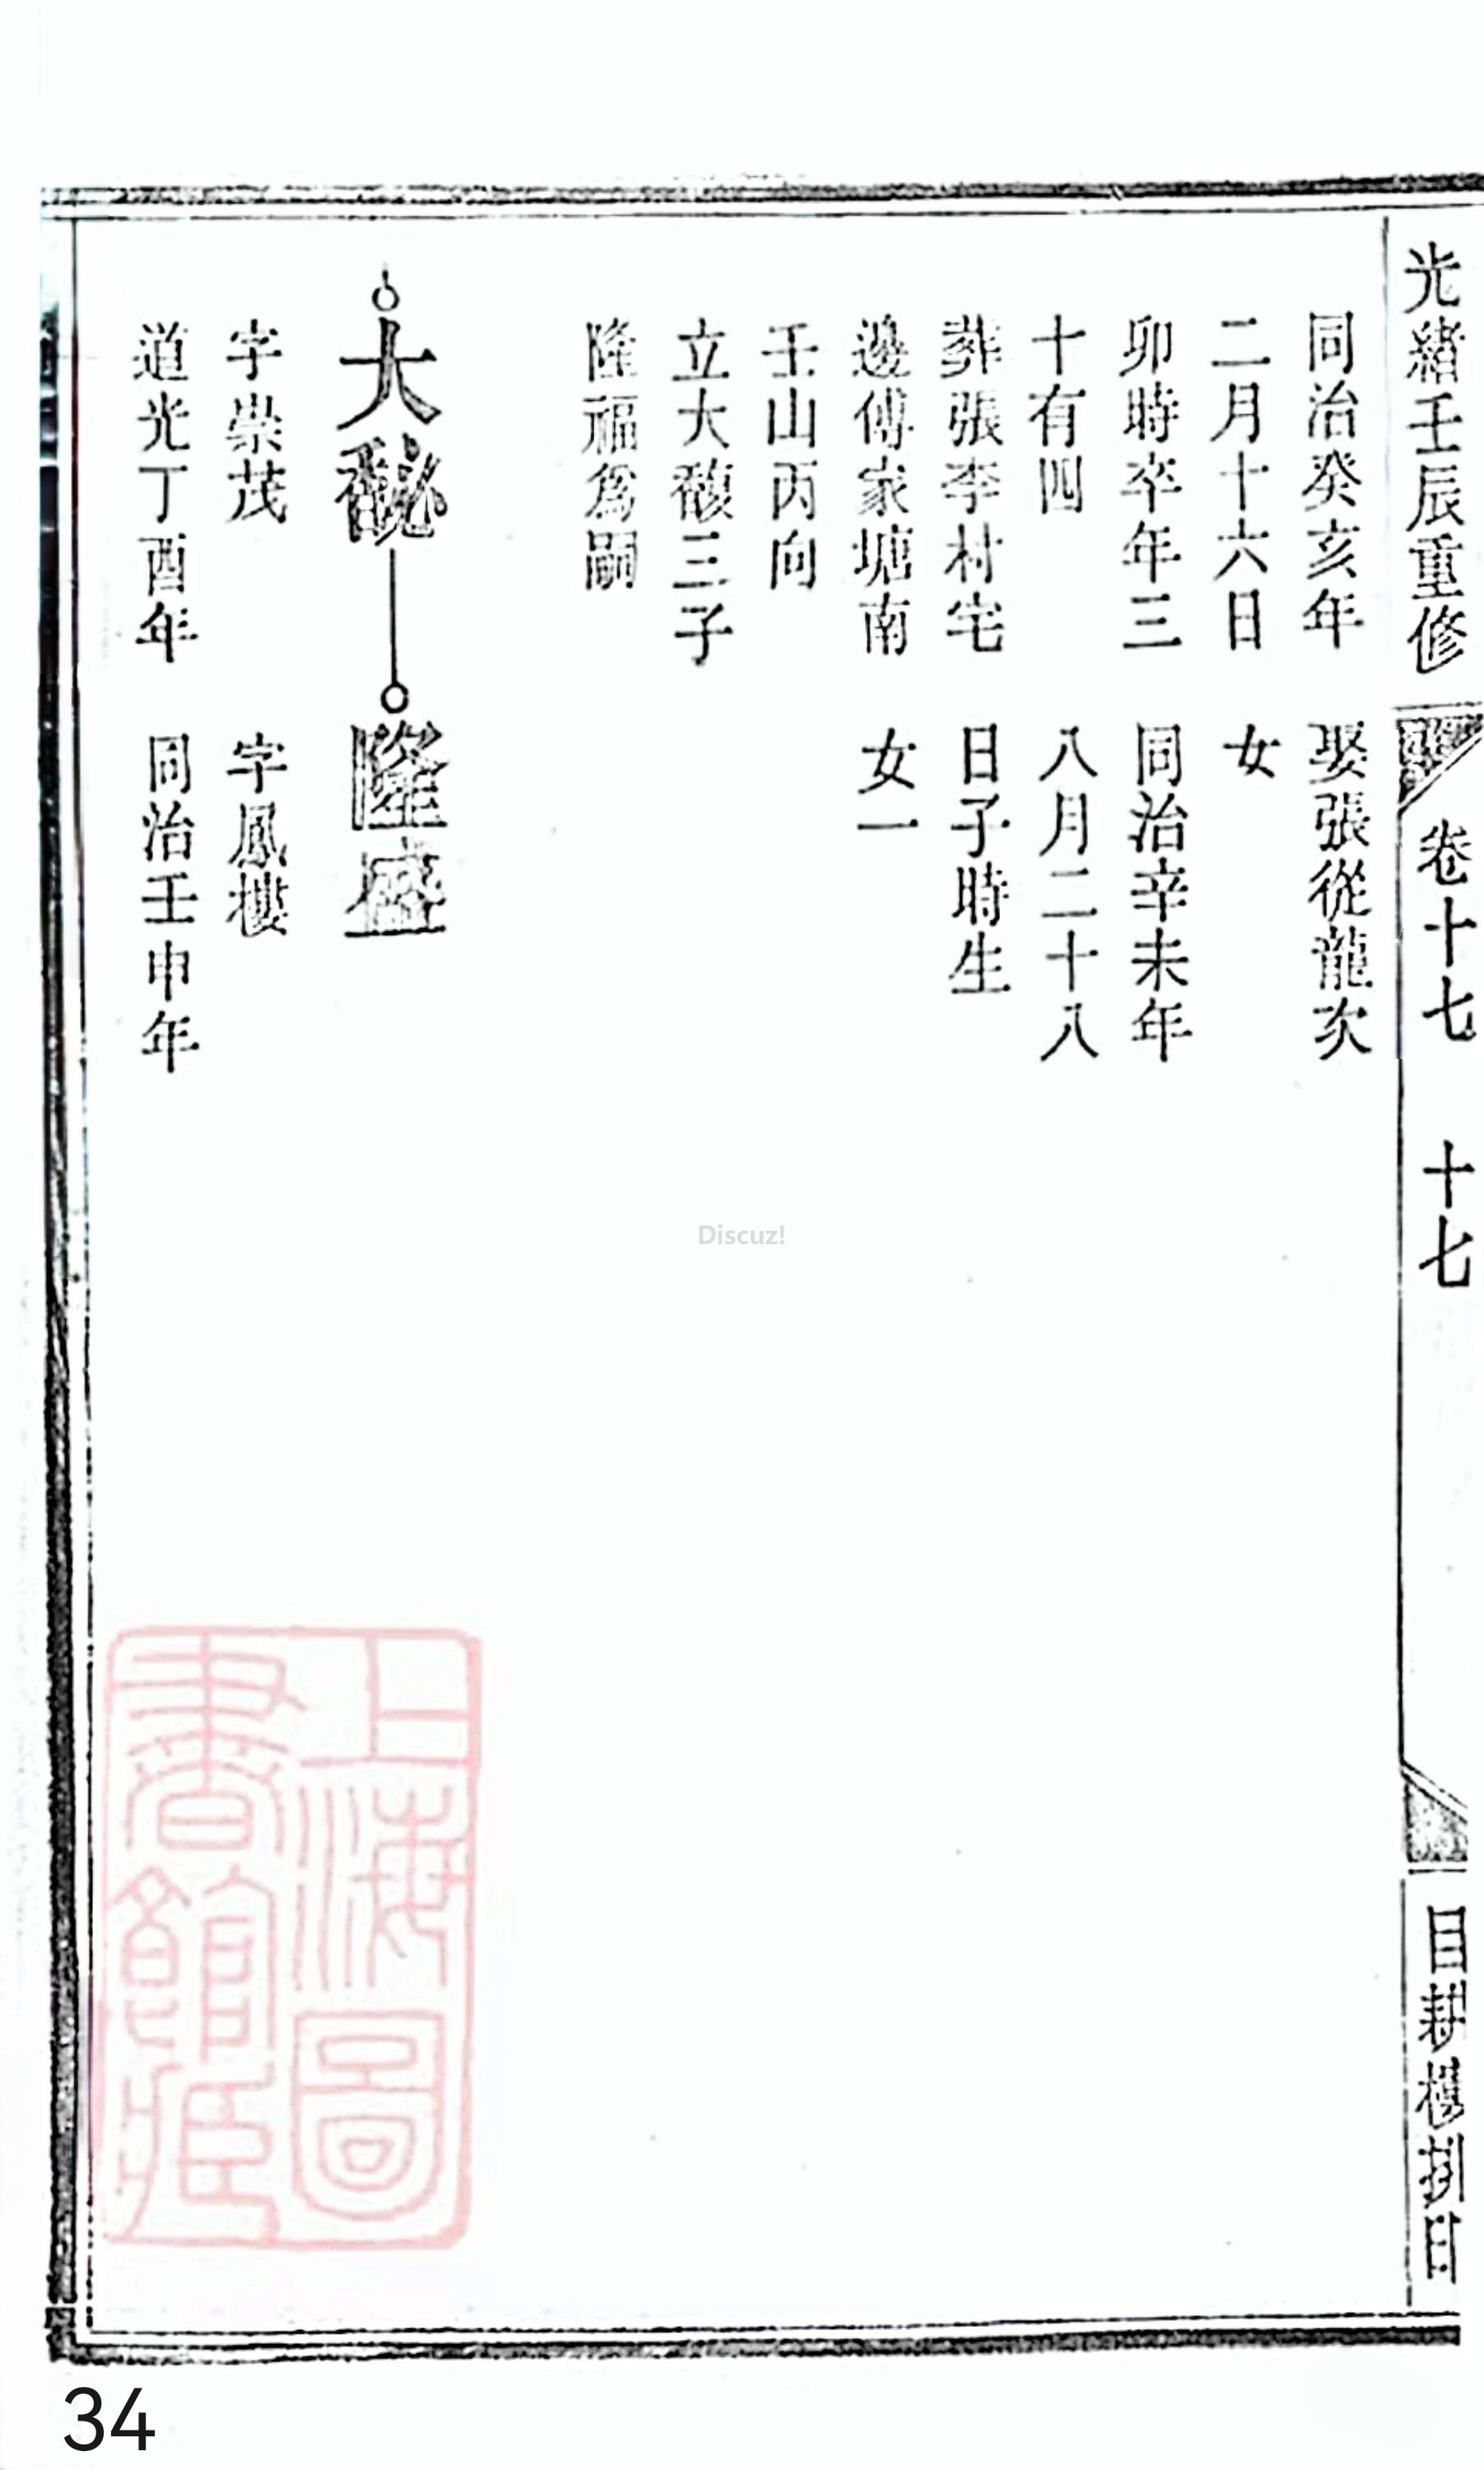 光緒壬辰重修
卷十七
十七
同治癸亥年
二月十六日
卯時卒年三
十有四
葬張李村宅
邊傅家塘南
壬山丙向
立大馥三子
隆福爲嗣
娶張從龍次
女
同治辛未年
八月二十八
日子時生
女一
大馝
隆盛
字崇茂
道光丁酉年
字鳳樓
同治壬申年
上海圖書館藏
Discuz!
34